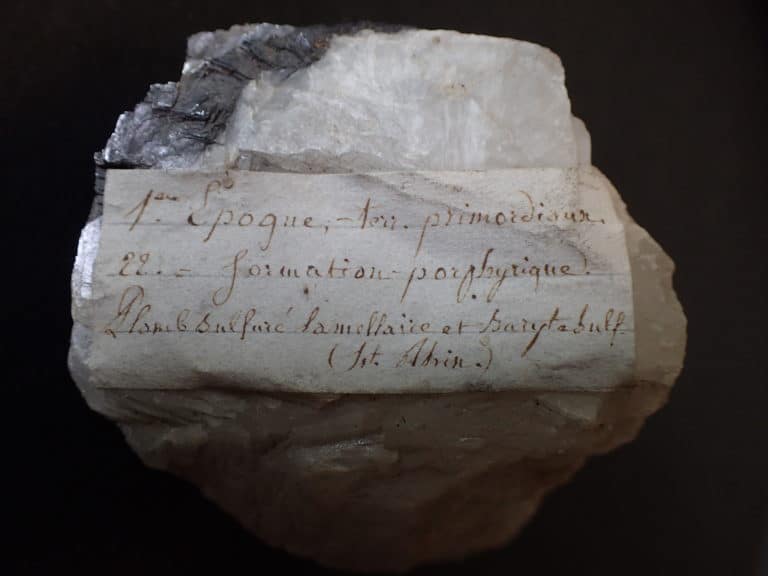 1ère Époque, - terr. primordiaux.
22. - formation porphyrique.
Plomb sulfuré lamellaire et baryte sulf.
(Ht. Rhin.)